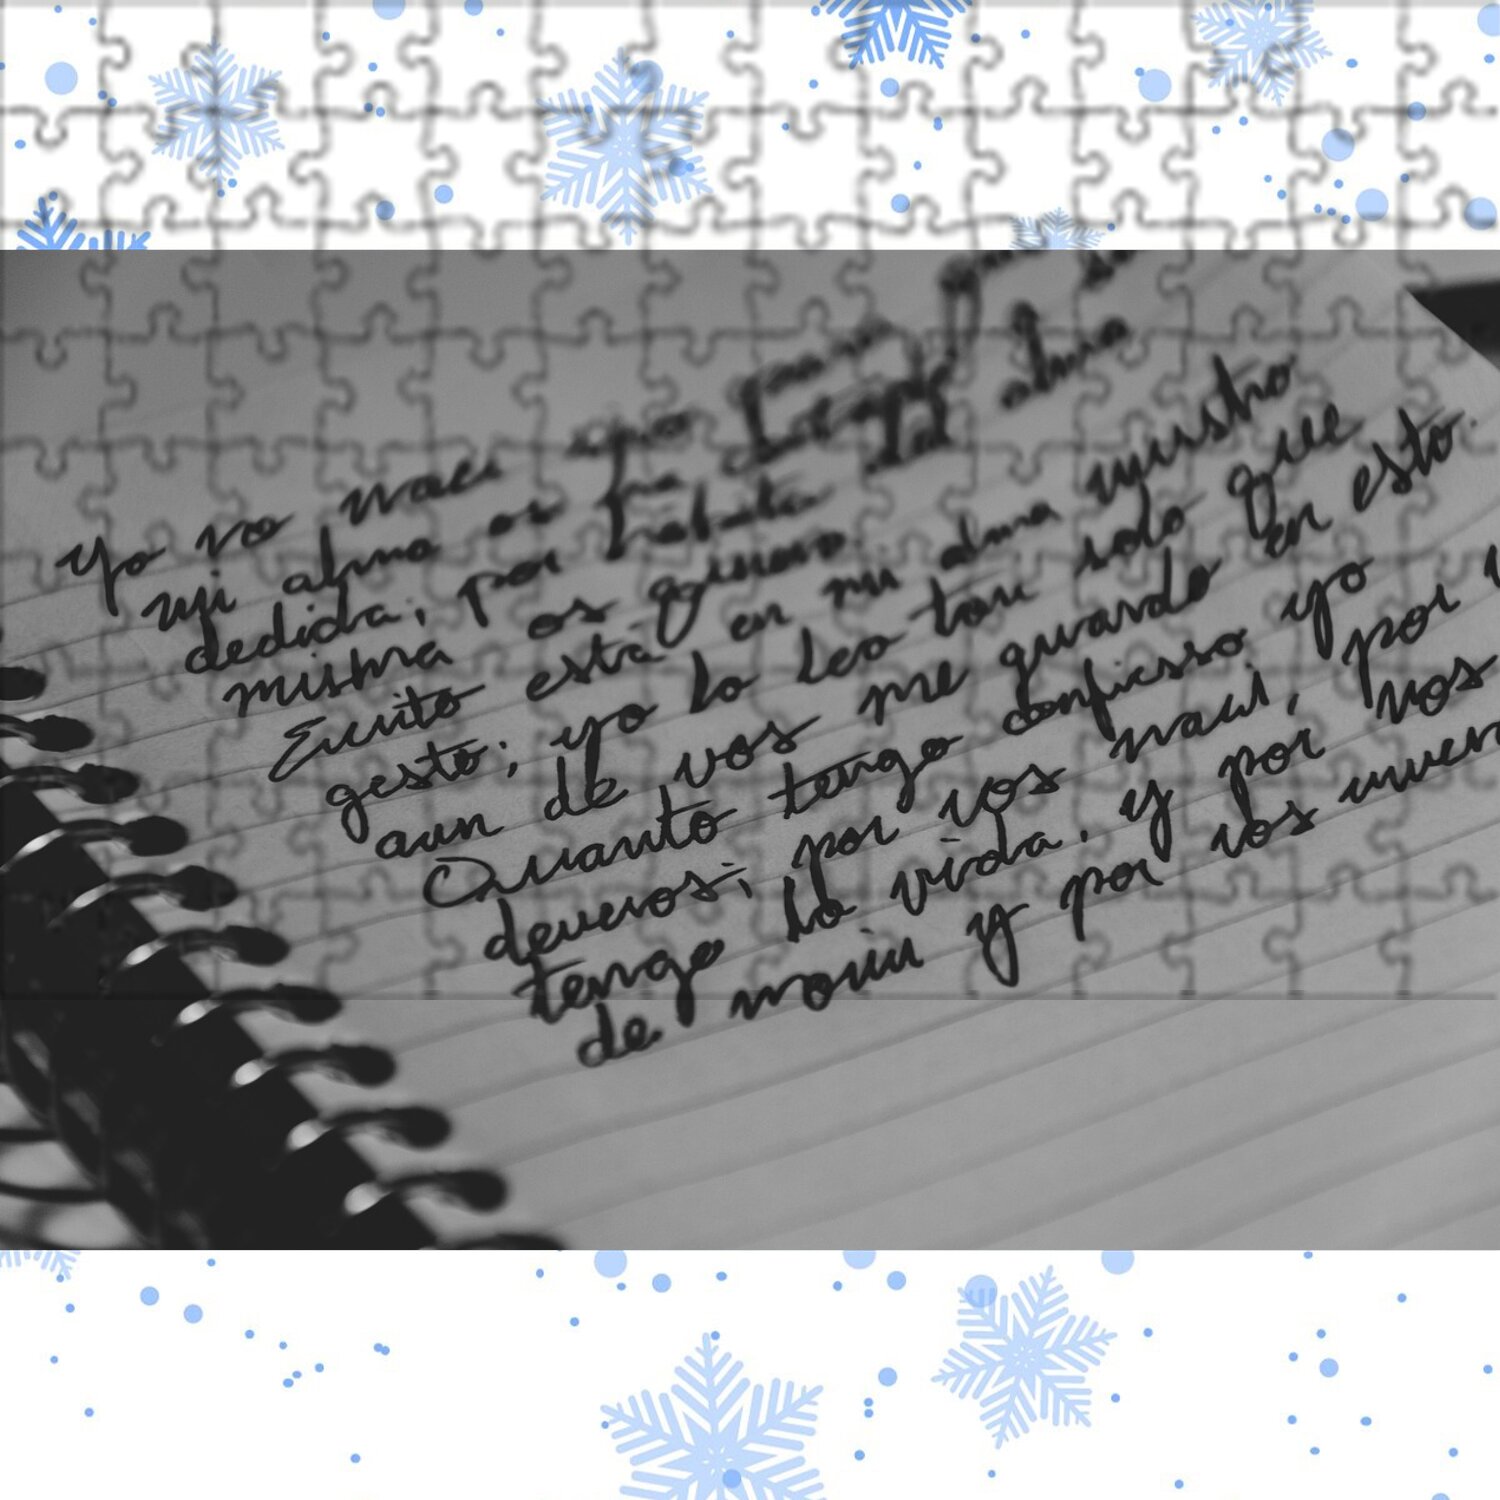 Yo no naci sino para
mi alma os ha
dedida; por habito alma
misma os quiero.
Escrito está en mi alma vuestro
gesto; yo lo leo tan solo que
aun de vos me guardo en esto.
Quanto tengo confiesso yo
deveros; por vos naci, por
tengo la vida, y por vos
de morir y por vos